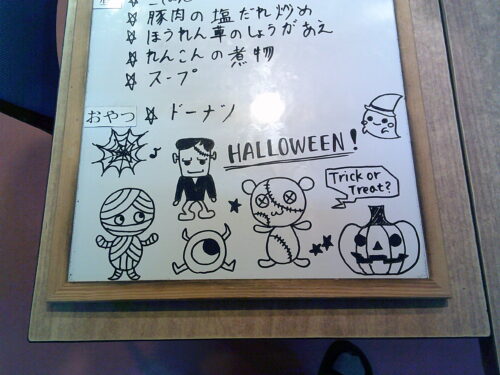 ☆ 豚肉の塩だれ炒め
☆ ほうれん草のしょうがあえ
☆ れんこんの煮物
☆ スープ
おやつ ☆ ドーナツ
HALLOWEEN!
Trick or
Treat?